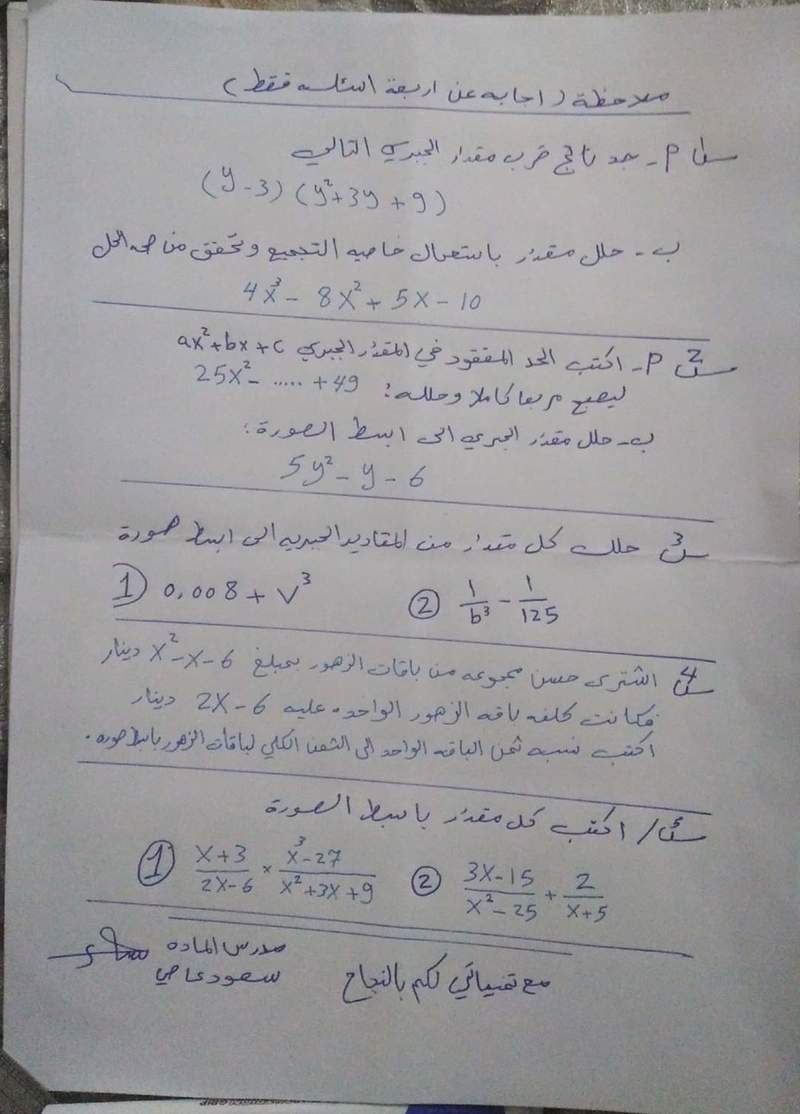 ملاحظة (اجابه عن اربعة اسئله فقط)
س1 P- جد ناتج ضرب مقدار الجبري التالي
(y-3) (y²+3y+9)
ب- حلل مقدار باستعمال خاصيه التجميع وتحقق من صحه الحل
4x³ - 8x² + 5x - 10
س2 P- اكتب الحد المفقود في المقدار الجبري ax²+bx+c
ليصبح مربعا كاملا وحلله: 25x² - ..... + 49
ب- حلل مقدار الجبري الى ابسط الصورة:
5y² - y - 6
س3 حلل كل مقدار من المقادير الجبريه الى ابسط صورة
1) 0.008 + V³ ② 1/b³ - 1/125
س4 اشترى حسن مجموعه من باقات الزهور بمبلغ x²-x-6 دينار
فكانت كلفه باقه الزهور الواحده عليه 2x-6 دينار
اكتب نسبه ثمن الباقه الواحد الى الثمن الكلي لباقات الزهور بابسط صوره.
س5/ اكتب كل مقدار بابسط الصورة
① x+3/2x-6 × x³-27/x²+3x+9 ② 3x-15/x²-25 + 2/x+5
مدرس الماده
مع تمنياتي لكم بالنجاح سعود عاصي